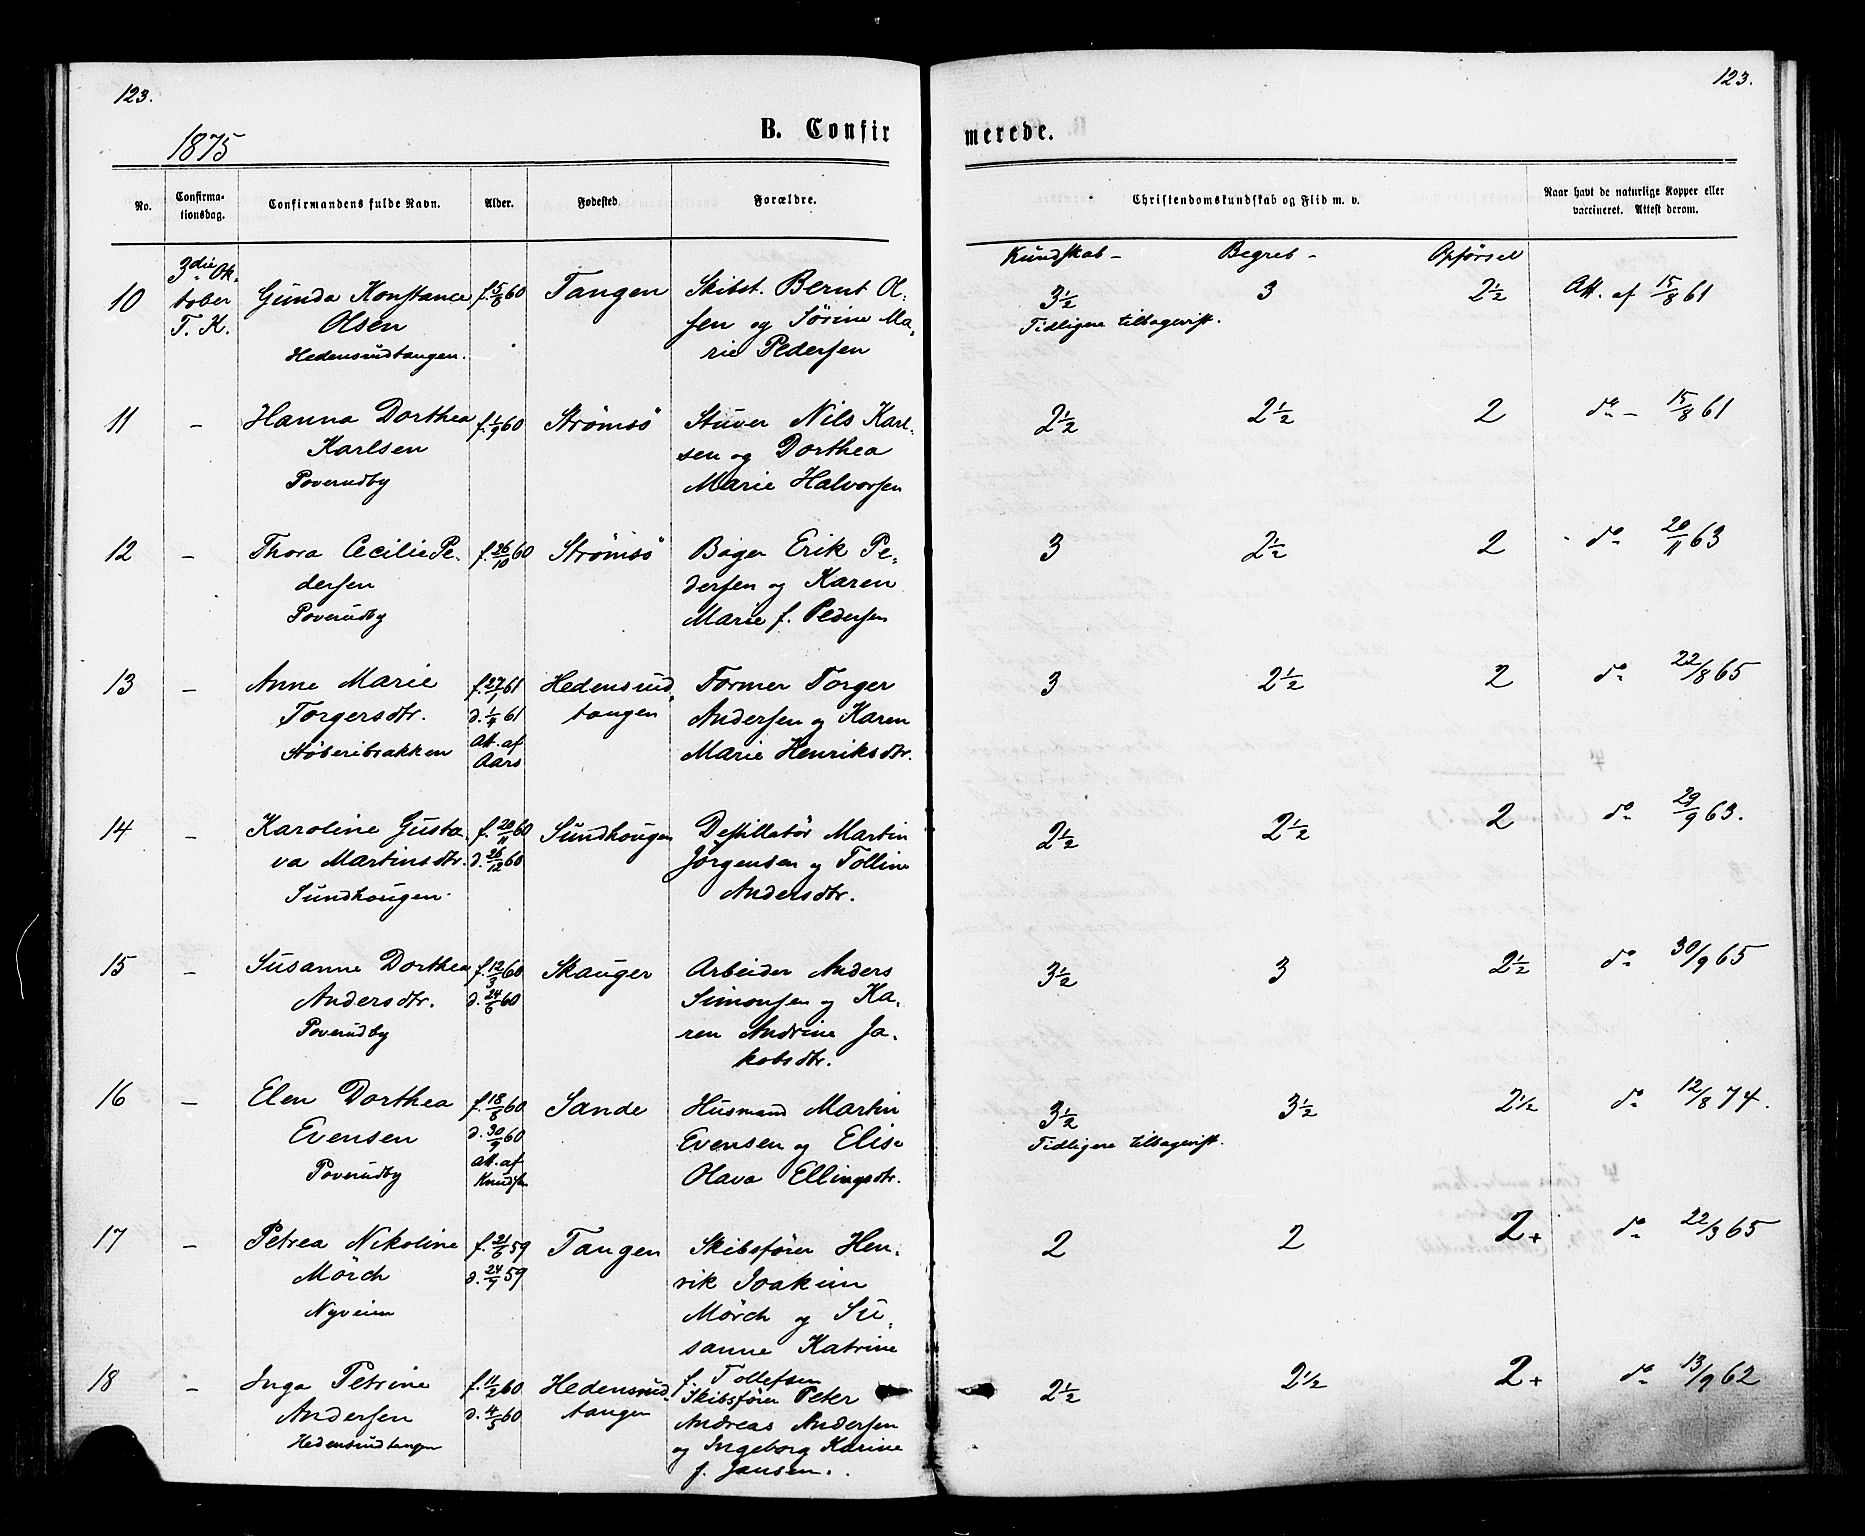 123.
123.
1875
B. Confirmerede.
No.
Confirma-
tionsdag.
Confirmandens fulde Navn.
Alder.
Fødested
Forældre.
Christendomskundskab og Flid m. v.
Naar havt de naturlige Kopper eller
vaccineret. Attest derom.
Kundskab - Begreb - Opførsel
10 3die Ok- Gunda Konstance f. 5/8 60 Tangen Skibst. Bernt Ol- 3½ 3 2½ Att. af 15/8 61
tober Olsen sen og Sørine Ma- Tidligere tilbagevist.
T. K. Hedensrudtangen. rie Pedersen
11 - Hanna Dorthea f. 1/9 60 Strømsö Stuver Nils Karl- 2½ 2½ 2 do - 15/8 61
Karlsen sen og Dorthea
Poverudby Marie Halvorsen
12 - Thora Cecilie Pe- f. 26/10 60 Strømsö Bager Erik Pe- 3 2½ 2 do 20/11 63
dersen dersen og Karen
Poverudby Marie f. Pedersen
13 - Anne Marie f. 27/1 61 Hedensrud- Former Torger 3 2½ 2 do 22/8 65
Torgersdtr. d. 1/4 61 tangen Andersen og Karen
Støberibrakken Att. af Marie Henriksdtr.
Aars
14 - Karoline Gusta- f. 20/11 60 Sundhougen Destillatör Martin 2½ 2½ 2 do 29/9 63.
va Martinsdtr. d. 26/12 60 Jörgensen og Folline
Sundhougen. Andersdtr.
15 - Susanne Dorthea f. 12/3 60 Skauger Arbeider Anders 3½ 3 2½ do 30/9 65
Andersdtr. d. 24/6 60 Simonsen og Ka-
Poverudby ren Andrine Ja-
kobsdtr.
16 - Elen Dorthea f. 18/8 60 Sande Husmand Martin 3½ 3½ 2½ do 12/8 74.
Evensen d. 30/9 60 Evensen og Elise Tidligere tilbagevist.
Poverudby Att. af Olava Ellingsdtr.
Knudsen
17 - Petrea Nikoline f. 21/6 59 Tangen Skibsfører Hen- 2 2 2+ do 22/3 65
Mörch d. 24/7 59 rik Joakim
Nyveien Mörch og Su-
sanne Katrine
f. Tollefsen
18 - Inga Petrine f. 11/2 60 Hedensrud- Skibsfører Peter 2½ 2½ 2+ do 13/9 62
Andersen d. 4/5 60 tangen Andreas Andersen
Hedensrudtangen og Ingeborg Karine
f. Jansen.